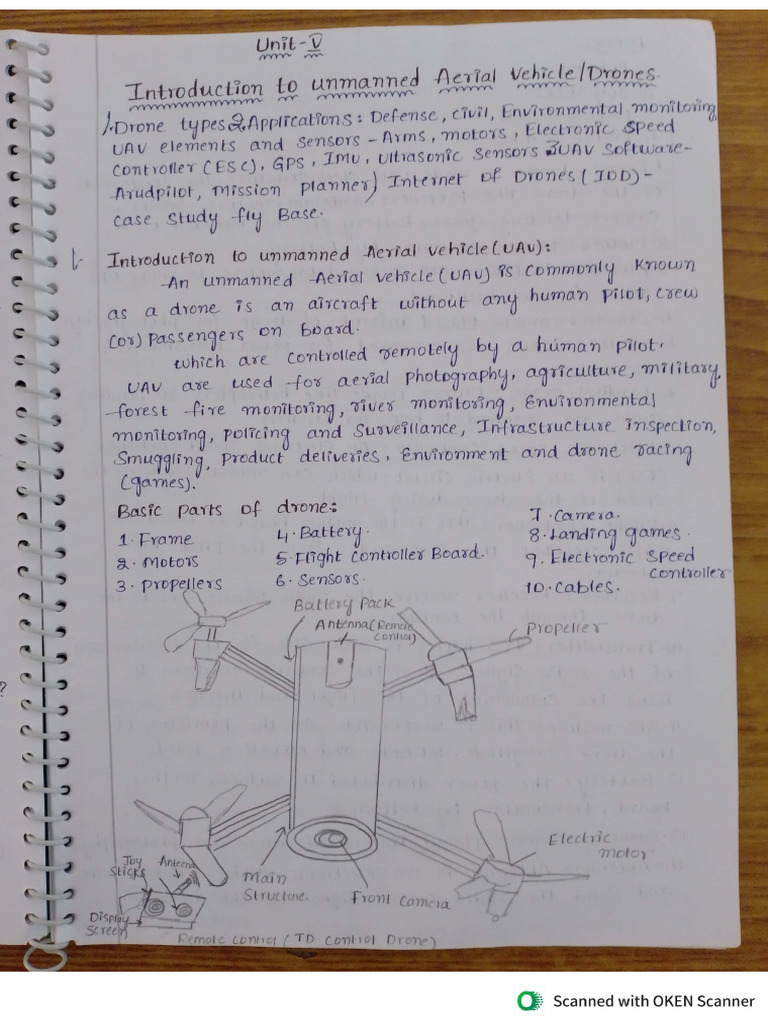 Unit-V
Introduction to unmanned Aerial Vehicle/Drones.
1. Drone types 2. Applications: Defense, civil, Environmental monitoring,
UAV elements and sensors - Arms, motors, Electronic Speed
Controller (ESC), GPS, IMU, Ultrasonic Sensors 3 UAV Software-
Arudpilot, Mission planner) Internet of Drones (IOD)-
case study fly Base.
1. Introduction to unmanned Aerial Vehicle (UAV):
An unmanned Aerial vehicle (UAV) is commonly known
as a drone is an aircraft without any human pilot, crew
(or) passengers on board.
which are controlled remotely by a human pilot.
UAV are used for aerial photography, agriculture, military,
forest fire monitoring, river monitoring, Environmental
monitoring, policing and surveillance, Infrastructure inspection,
Smuggling, product deliveries, Environment and drone racing
(games).
Basic parts of drone:
1. Frame
2. Motors
3. Propellers
4. Battery.
5. Flight Controller Board.
6. Sensors.
7. Camera.
8. Landing games.
9. Electronic Speed
controller
10. Cables.
Battery Pack
Antenna (Remote
control)
Propeller
Electric
motor
Joy
Sticks
Antenna
Main
Structure
Front Camera
Display
Screen
Remote Control (TD Control Drone)
?
Scanned with OKEN Scanner